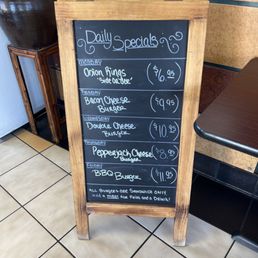 Daily Specials
Monday
Onion Rings
"Side Order"
$6.95
Tuesday
Bacon Cheese
Burger
$9.95
Wednesday
Double Cheese
Burger
$10.95
Thursday
Pepperjack Cheese
Burger
$8.95
Friday
BBQ
Burger
$11.95
All Burgers are Sandwich only
Make a meal for Fries and a Drink!